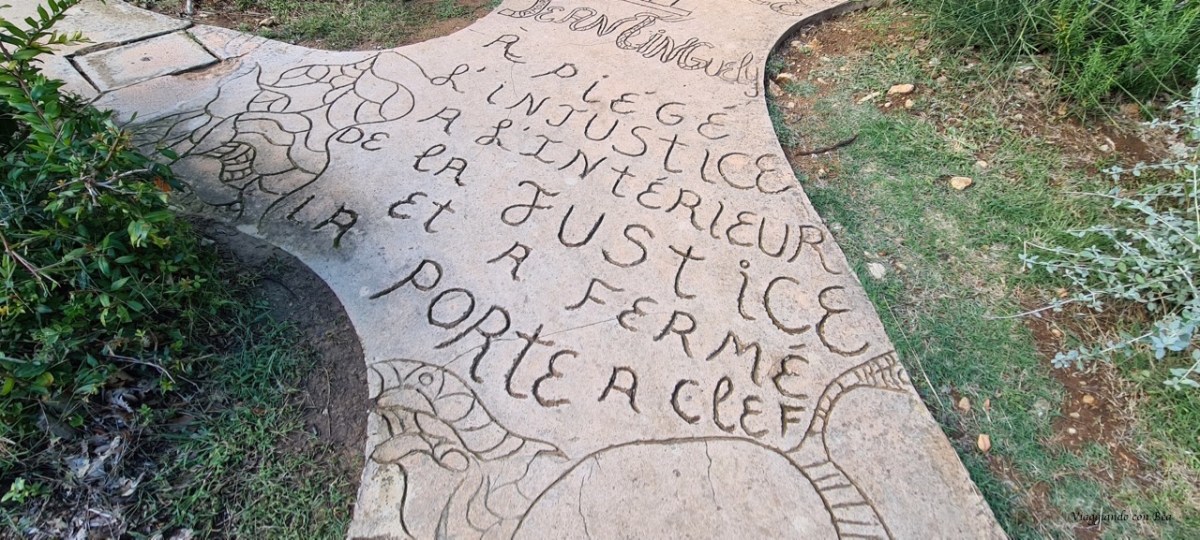 JEAN Tinguely
À PiÉGÉ
L'INJUSTiCE
A L'INtERiEUR
DE la JUStiCE
Et A FERMÉ
lA PORtE A ClEF
Viaggiando con Bea